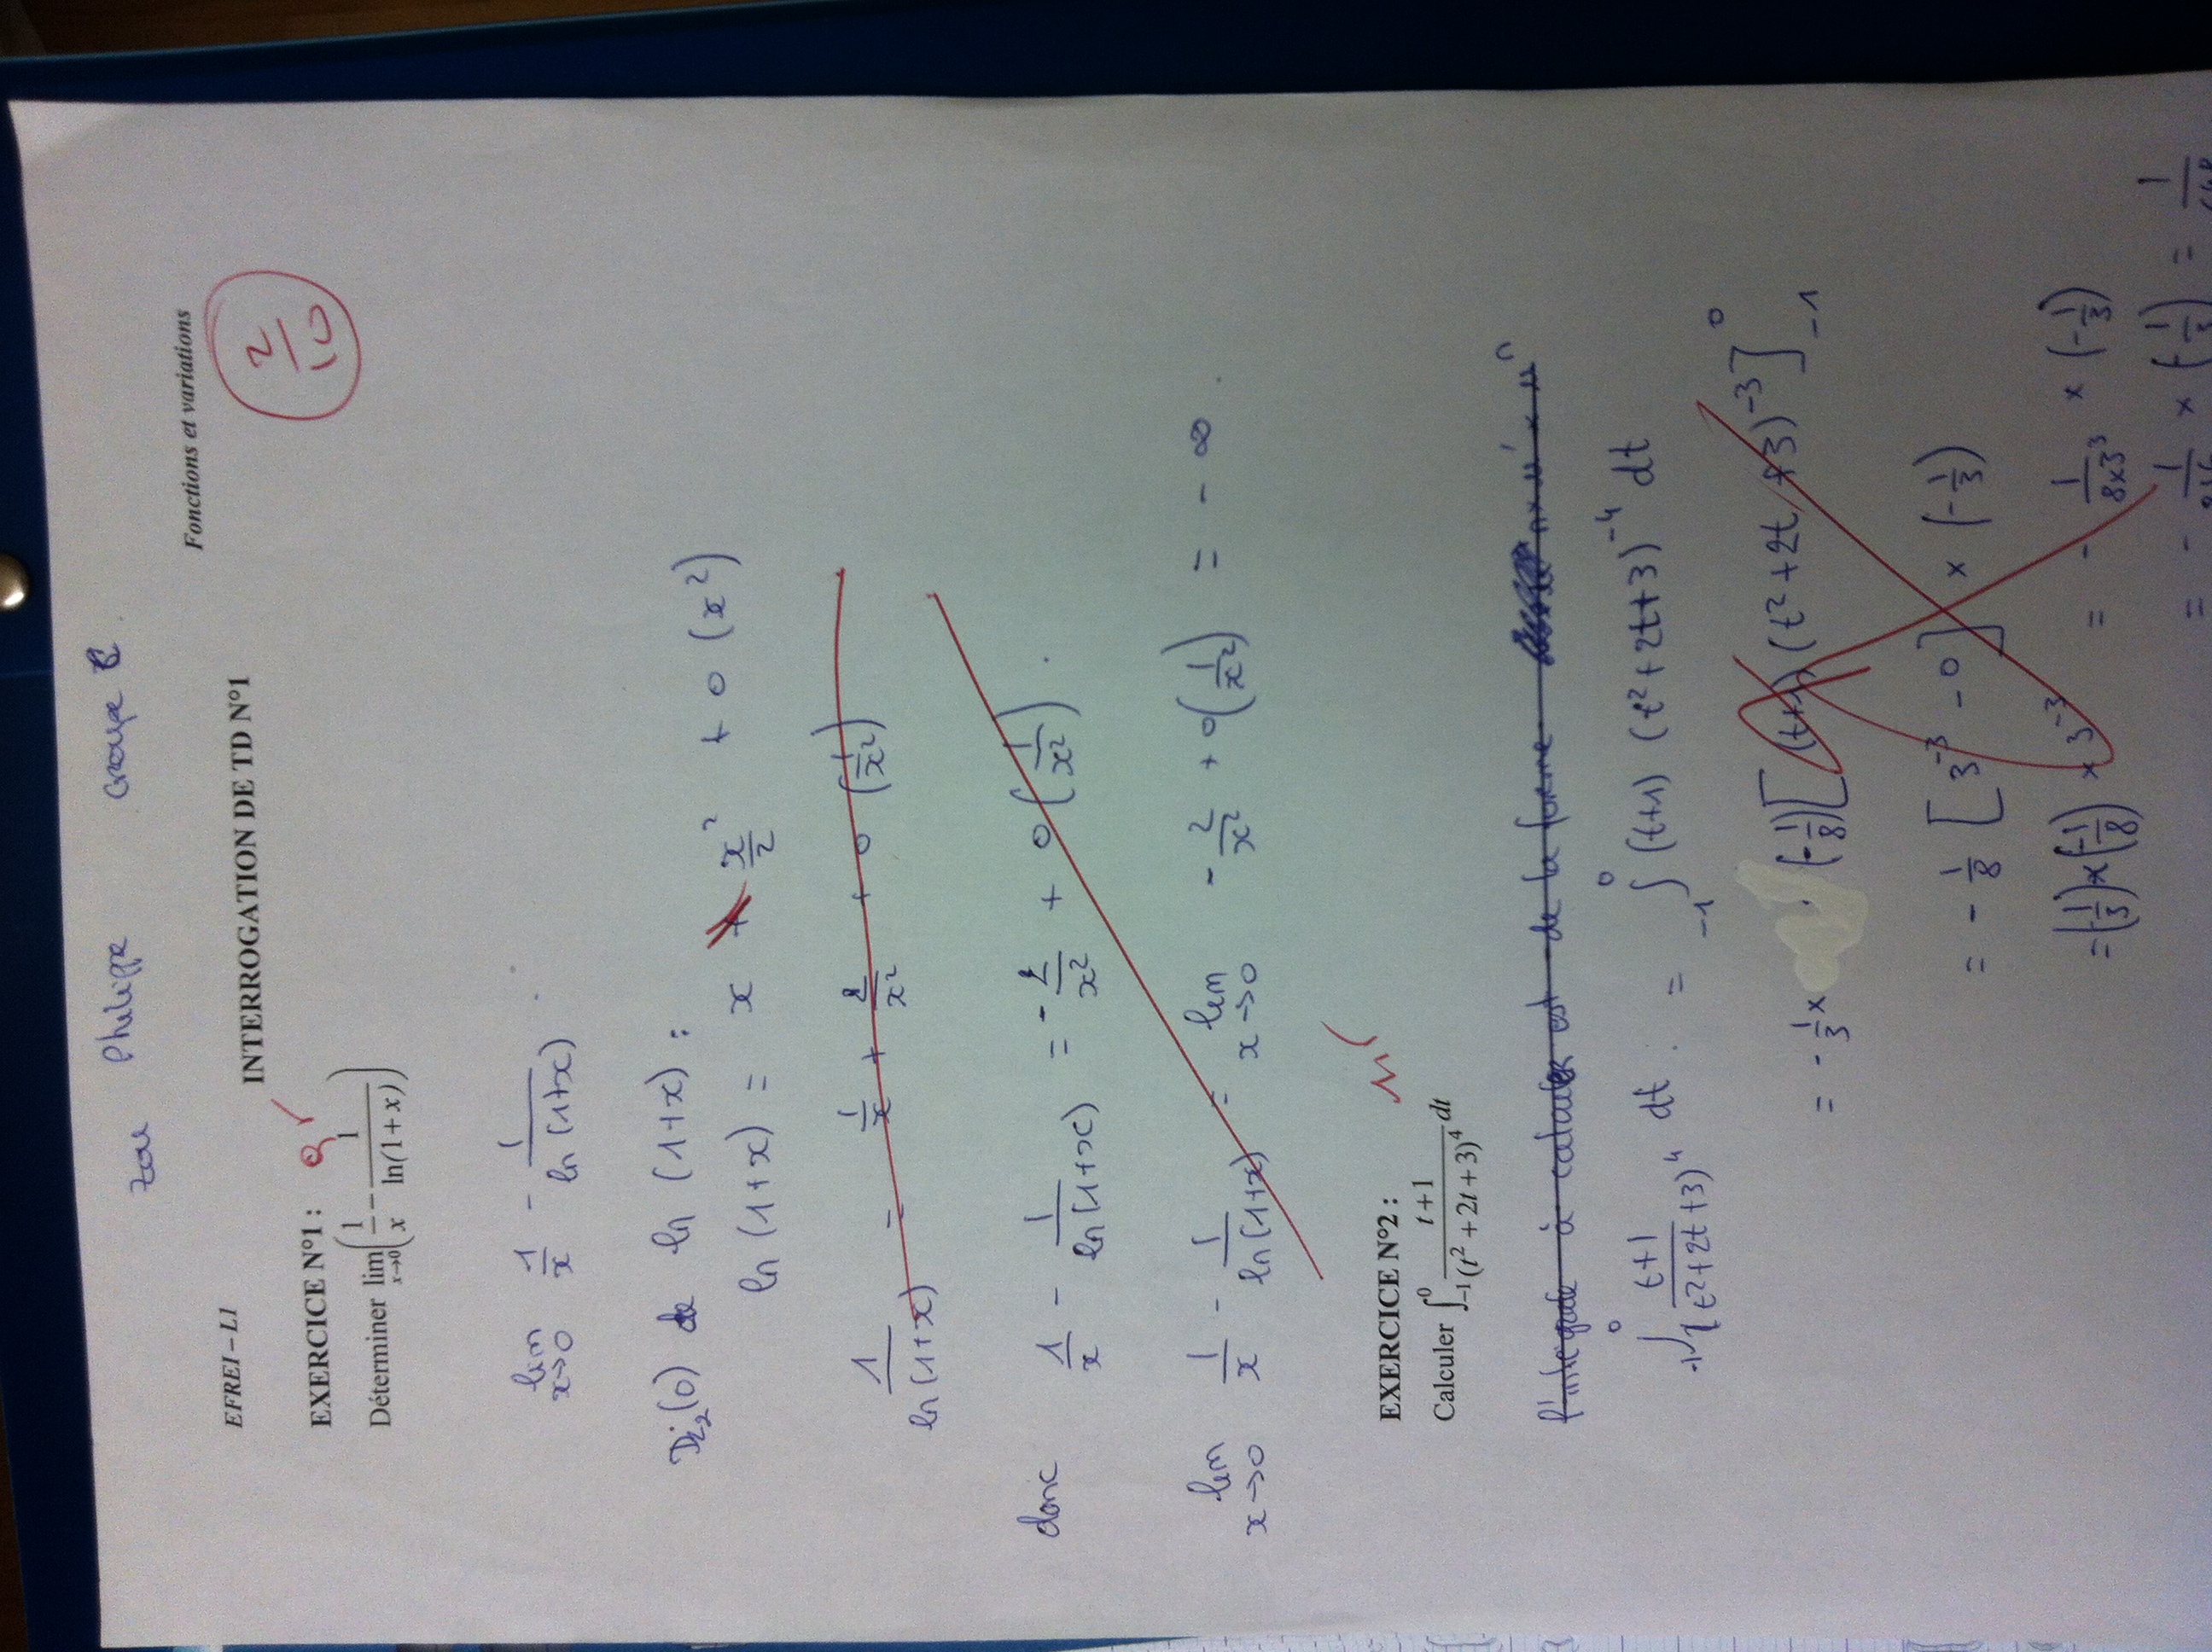 Zou Philippe Groupe C
Fonctions et variations
EFREI – L1
INTERROGATION DE TD N°1
2/10
EXERCICE N°1 :
Déterminer lim x→0 (1/x − 1/ln(1+x))
lim x→0 1/x − 1/ln(1+x)
DL₂(0) de ln (1+x) :
ln (1+x) = x + x²/2 + o (x²)
1/ln(1+x) = 1/x + 2/x² + o (1/x²)
donc 1/x − 1/ln(1+x) = −2/x² + o (1/x²).
lim x→0 1/x − 1/ln(1+x) = lim x→0 −2/x² + o(1/x²) = −∞.
EXERCICE N°2 :
Calculer ∫₋₁⁰ (t+1)/(t² + 2t + 3)⁴ dt
l'intégrale à calculer est de la forme n × u' × uⁿ
∫₋₁⁰ (t+1)/(t²+2t+3)⁴ dt. = ∫₋₁⁰ (t+1) (t²+2t+3)⁻⁴ dt
= −1/3 × (−1/8) [(t+1) (t²+2t+3)⁻³]₋₁⁰
= −1/8 [3⁻³ − 0] × (−1/3)
= (−1/3) × (−1/8) × 3⁻³ = − 1/(8×3³) × (−1/3)